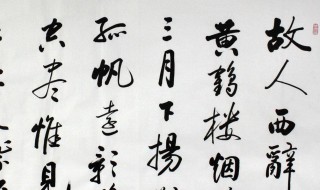 故人西辭
黄鶴楼烟
三月下揚
孤帆遠影
空盡惟見